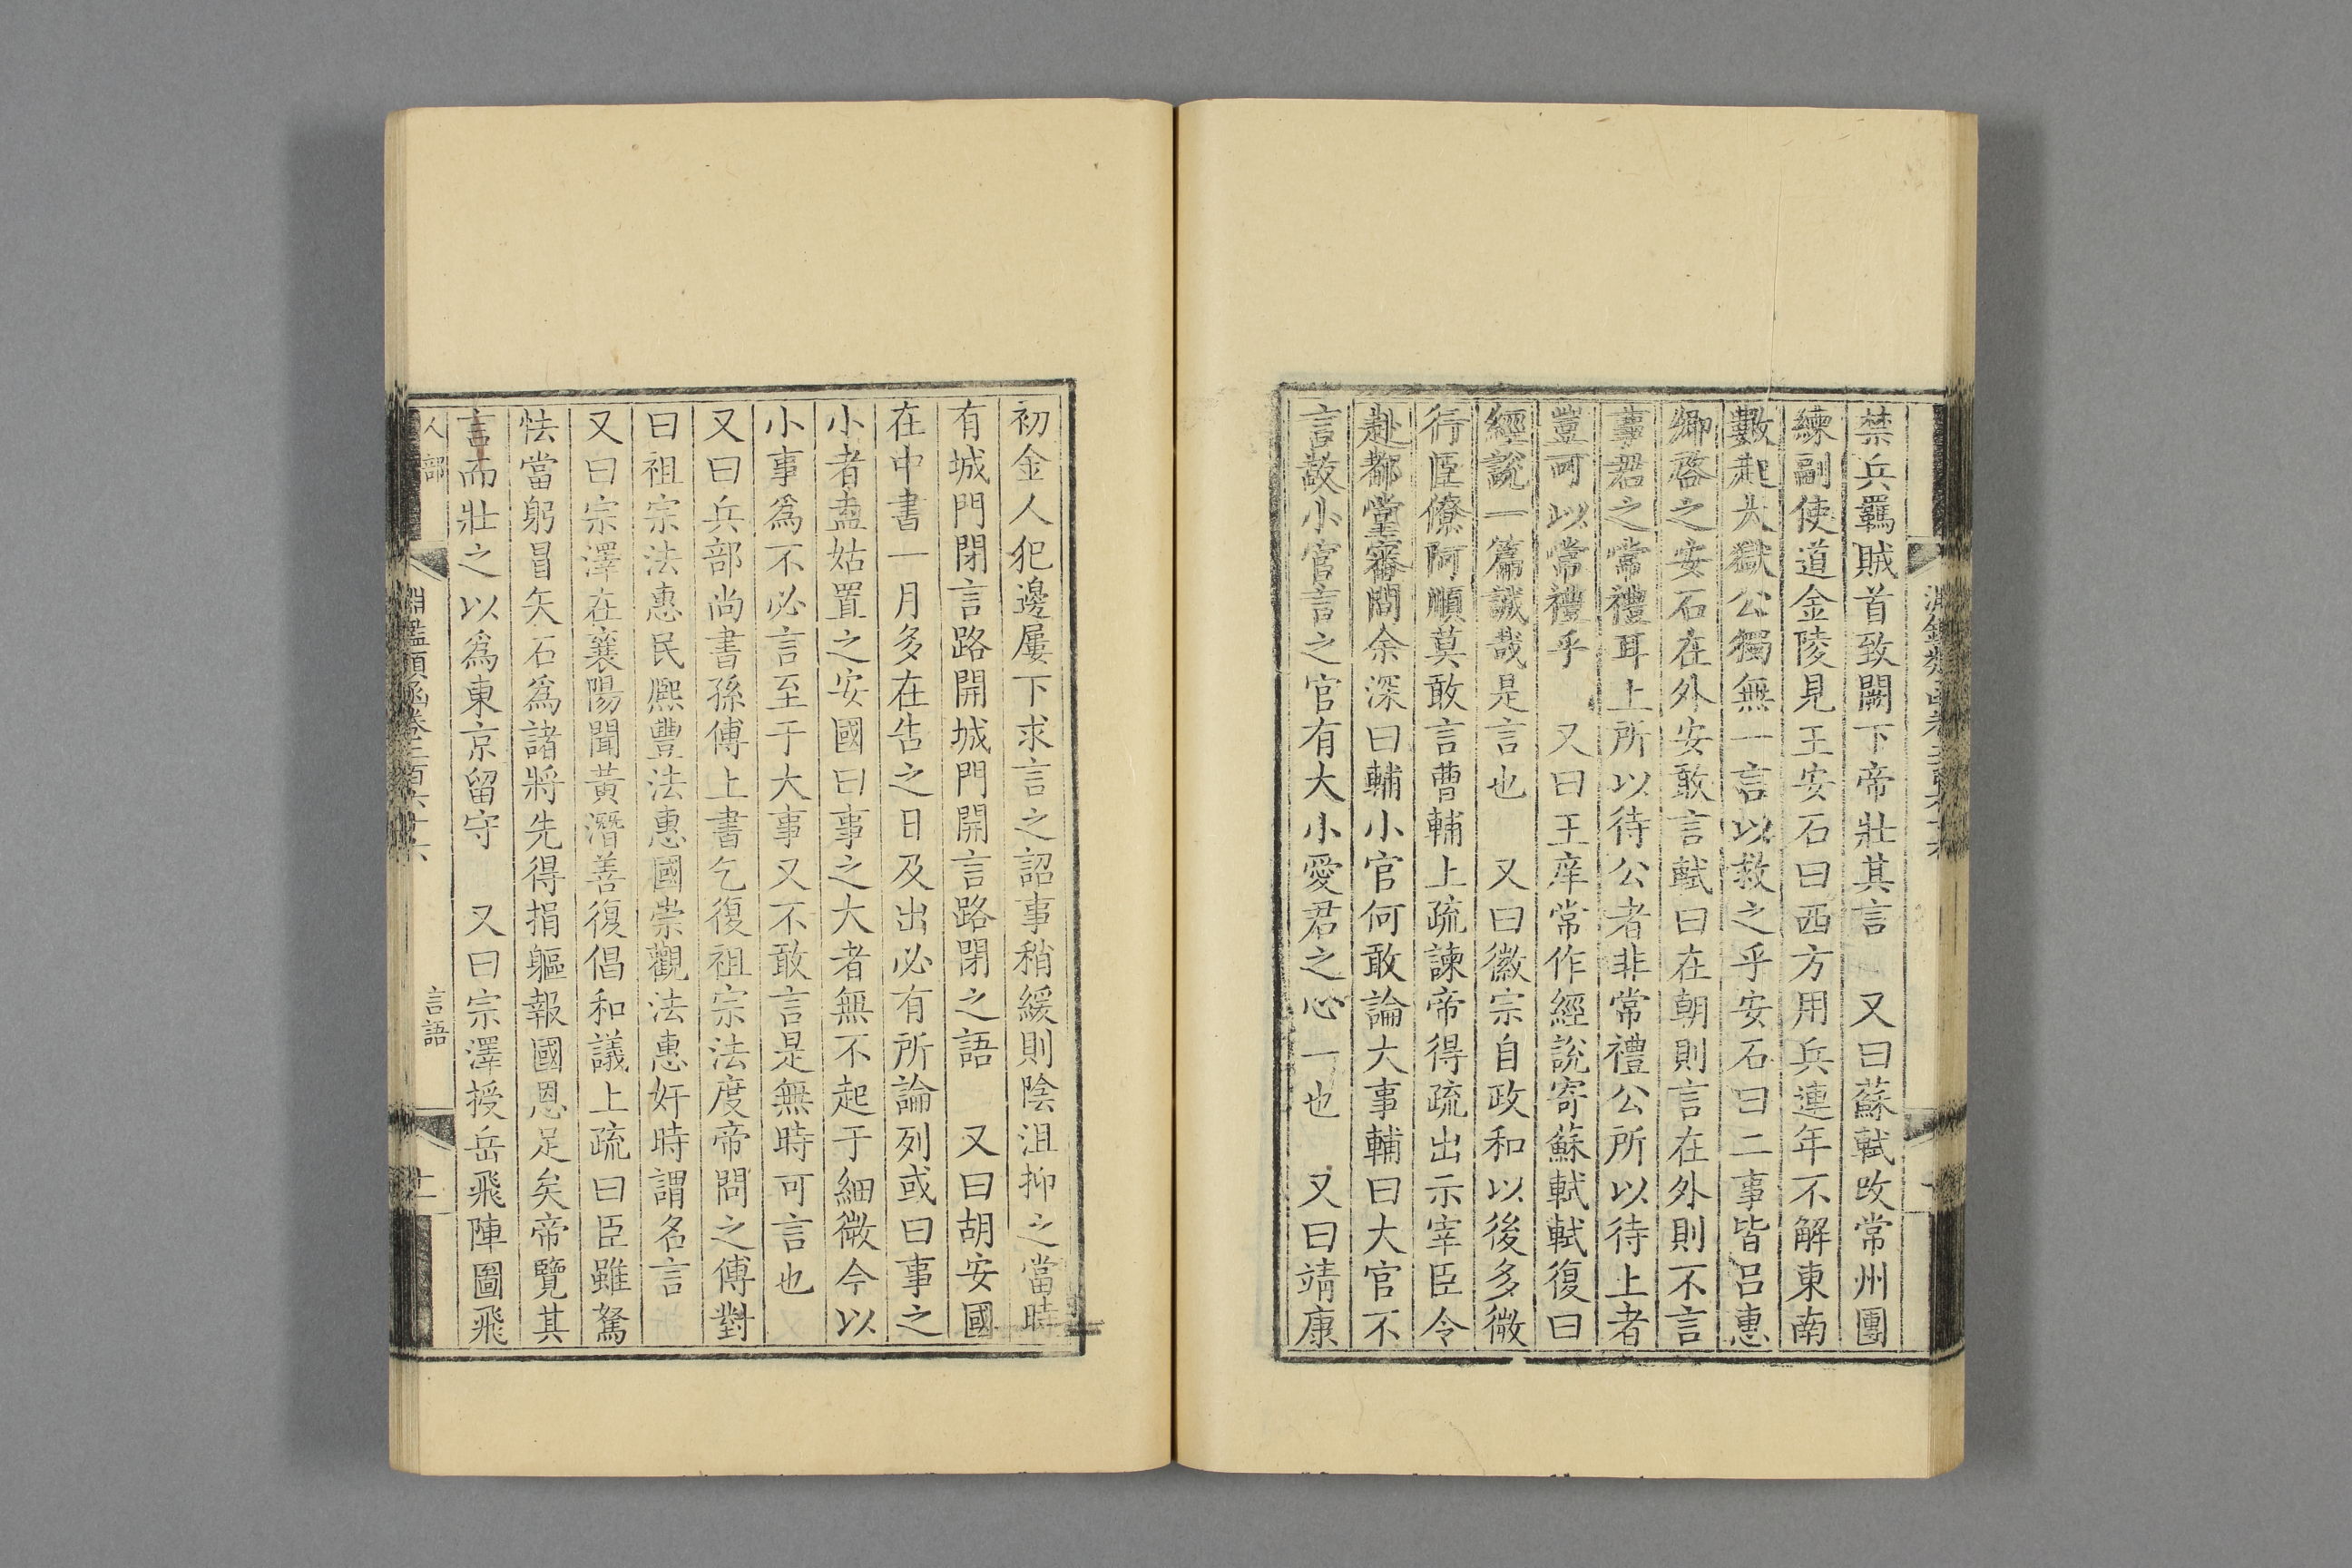 禁兵羈賊首致闕下帝壯其言　又曰蘇軾改常州團
練副使道金陵見王安石曰西方用兵連年不解東南
數起大獄公獨無一言以救之乎安石曰二事皆呂惠
卿啓之安石在外安敢言軾曰在朝則言在外則不言
事君之常禮耳上所以待公者非常禮公所以待上者
豈可以常禮乎　又曰王庠常作經說寄蘇軾軾復曰
經說一篇誠哉是言也　又曰徽宗自政和以後多微
行臣僚阿順莫敢言曹輔上疏諫帝得疏出示宰臣令
赴都堂審問余深曰輔小官何敢論大事輔曰大官不
言故小官言之官有大小愛君之心一也　又曰靖康
初金人犯邊屢下求言之詔事稍緩則陰沮抑之當時
有城門閉言路開城門開言路閉之語　又曰胡安國
在中書一月多在告之日及出必有所論列或曰事之
小者盍姑置之安國曰事之大者無不起于細微今以
小事爲不必言至于大事又不敢言是無時可言也
又曰兵部尚書孫傅上書乞復祖宗法度帝問之傅對
曰祖宗法惠民熈豐法惠國崇觀法惠奸時謂名言
又曰宗澤在襄陽聞黃潛善復倡和議上疏曰臣雖駑
怯當躬冒矢石爲諸將先得捐軀報國恩足矣帝覽其
言而壯之以爲東京留守　又曰宗澤授岳飛陣圖飛
人部
淵鑑類函卷二百六十六
言語